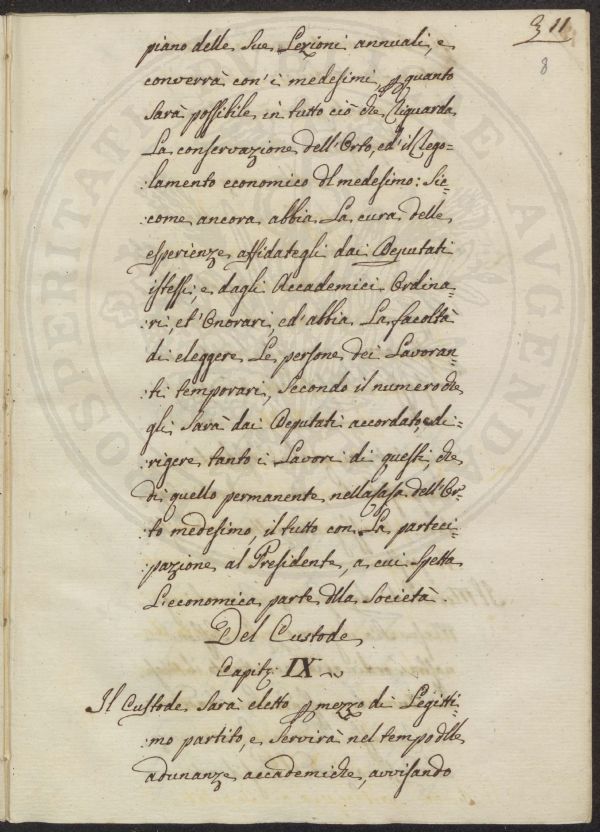 3 11
8
piano delle Sue Lezioni annuali, e
converrà con' i medesimi, p quanto
Sarà possibile in tutto ciò che Riguarda
La conservazione dell'Orto, ed' il Rego-
:lamento economico dl medesimo: Sic-
:come ancora abbia La cura delle
esperienze affidategli dai Deputati
istessi, e dagli Accademici Ordina-
:ri et' Onorari, ed' abbia La facoltà
di eleggere Le persone dei Lavoran-
:ti temporari, Secondo il numero che
gli Sarà dai Deputati accordato, e di-
:rigere tanto i Lavori di questi, che
di quello permanente nella casa dell'Or-
:to medesimo, il tutto con La parteci-
:pazione al Presidente, a cui Spetta
L'economica parte dlla Società.
Del Custode
Capit: IX
Il Custode Sarà eletto p mezzo di Legitti-
:mo partito, e Servirà nel tempo dlle
adunanze accademiche, avvisando
PROSPERITATI PUBLICAE AUGENDAE